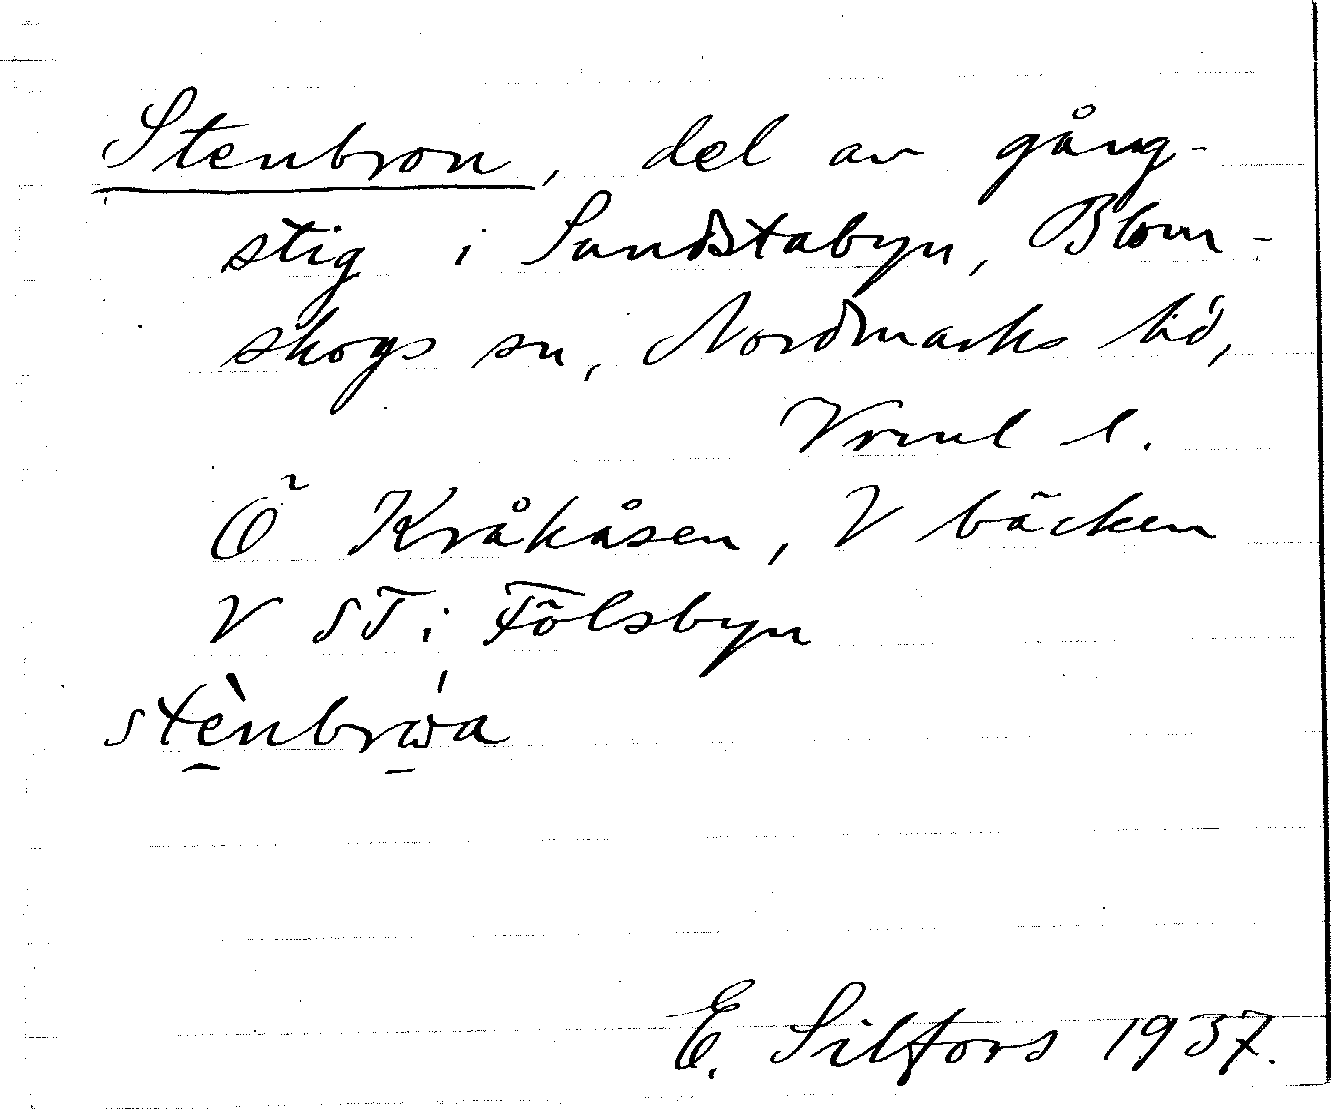 Stenbron, del av gång-
stig i Sandstabyn, Blom-
skogs sn, Nordmarks hd,
Vrml l.
Ö Kråkåsen, V bäcken
V ST i Fölsbyn
stènbrὼa
E. Silfors 1937.